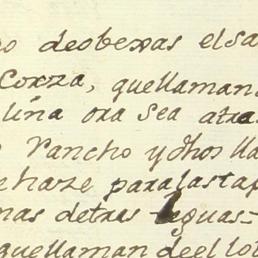 o deobexas elsa
Corza, quellaman
liña ora sea atra
rancho y dhos lla
ehaze paralastap
nas detras leguas-
quellaman deel lo